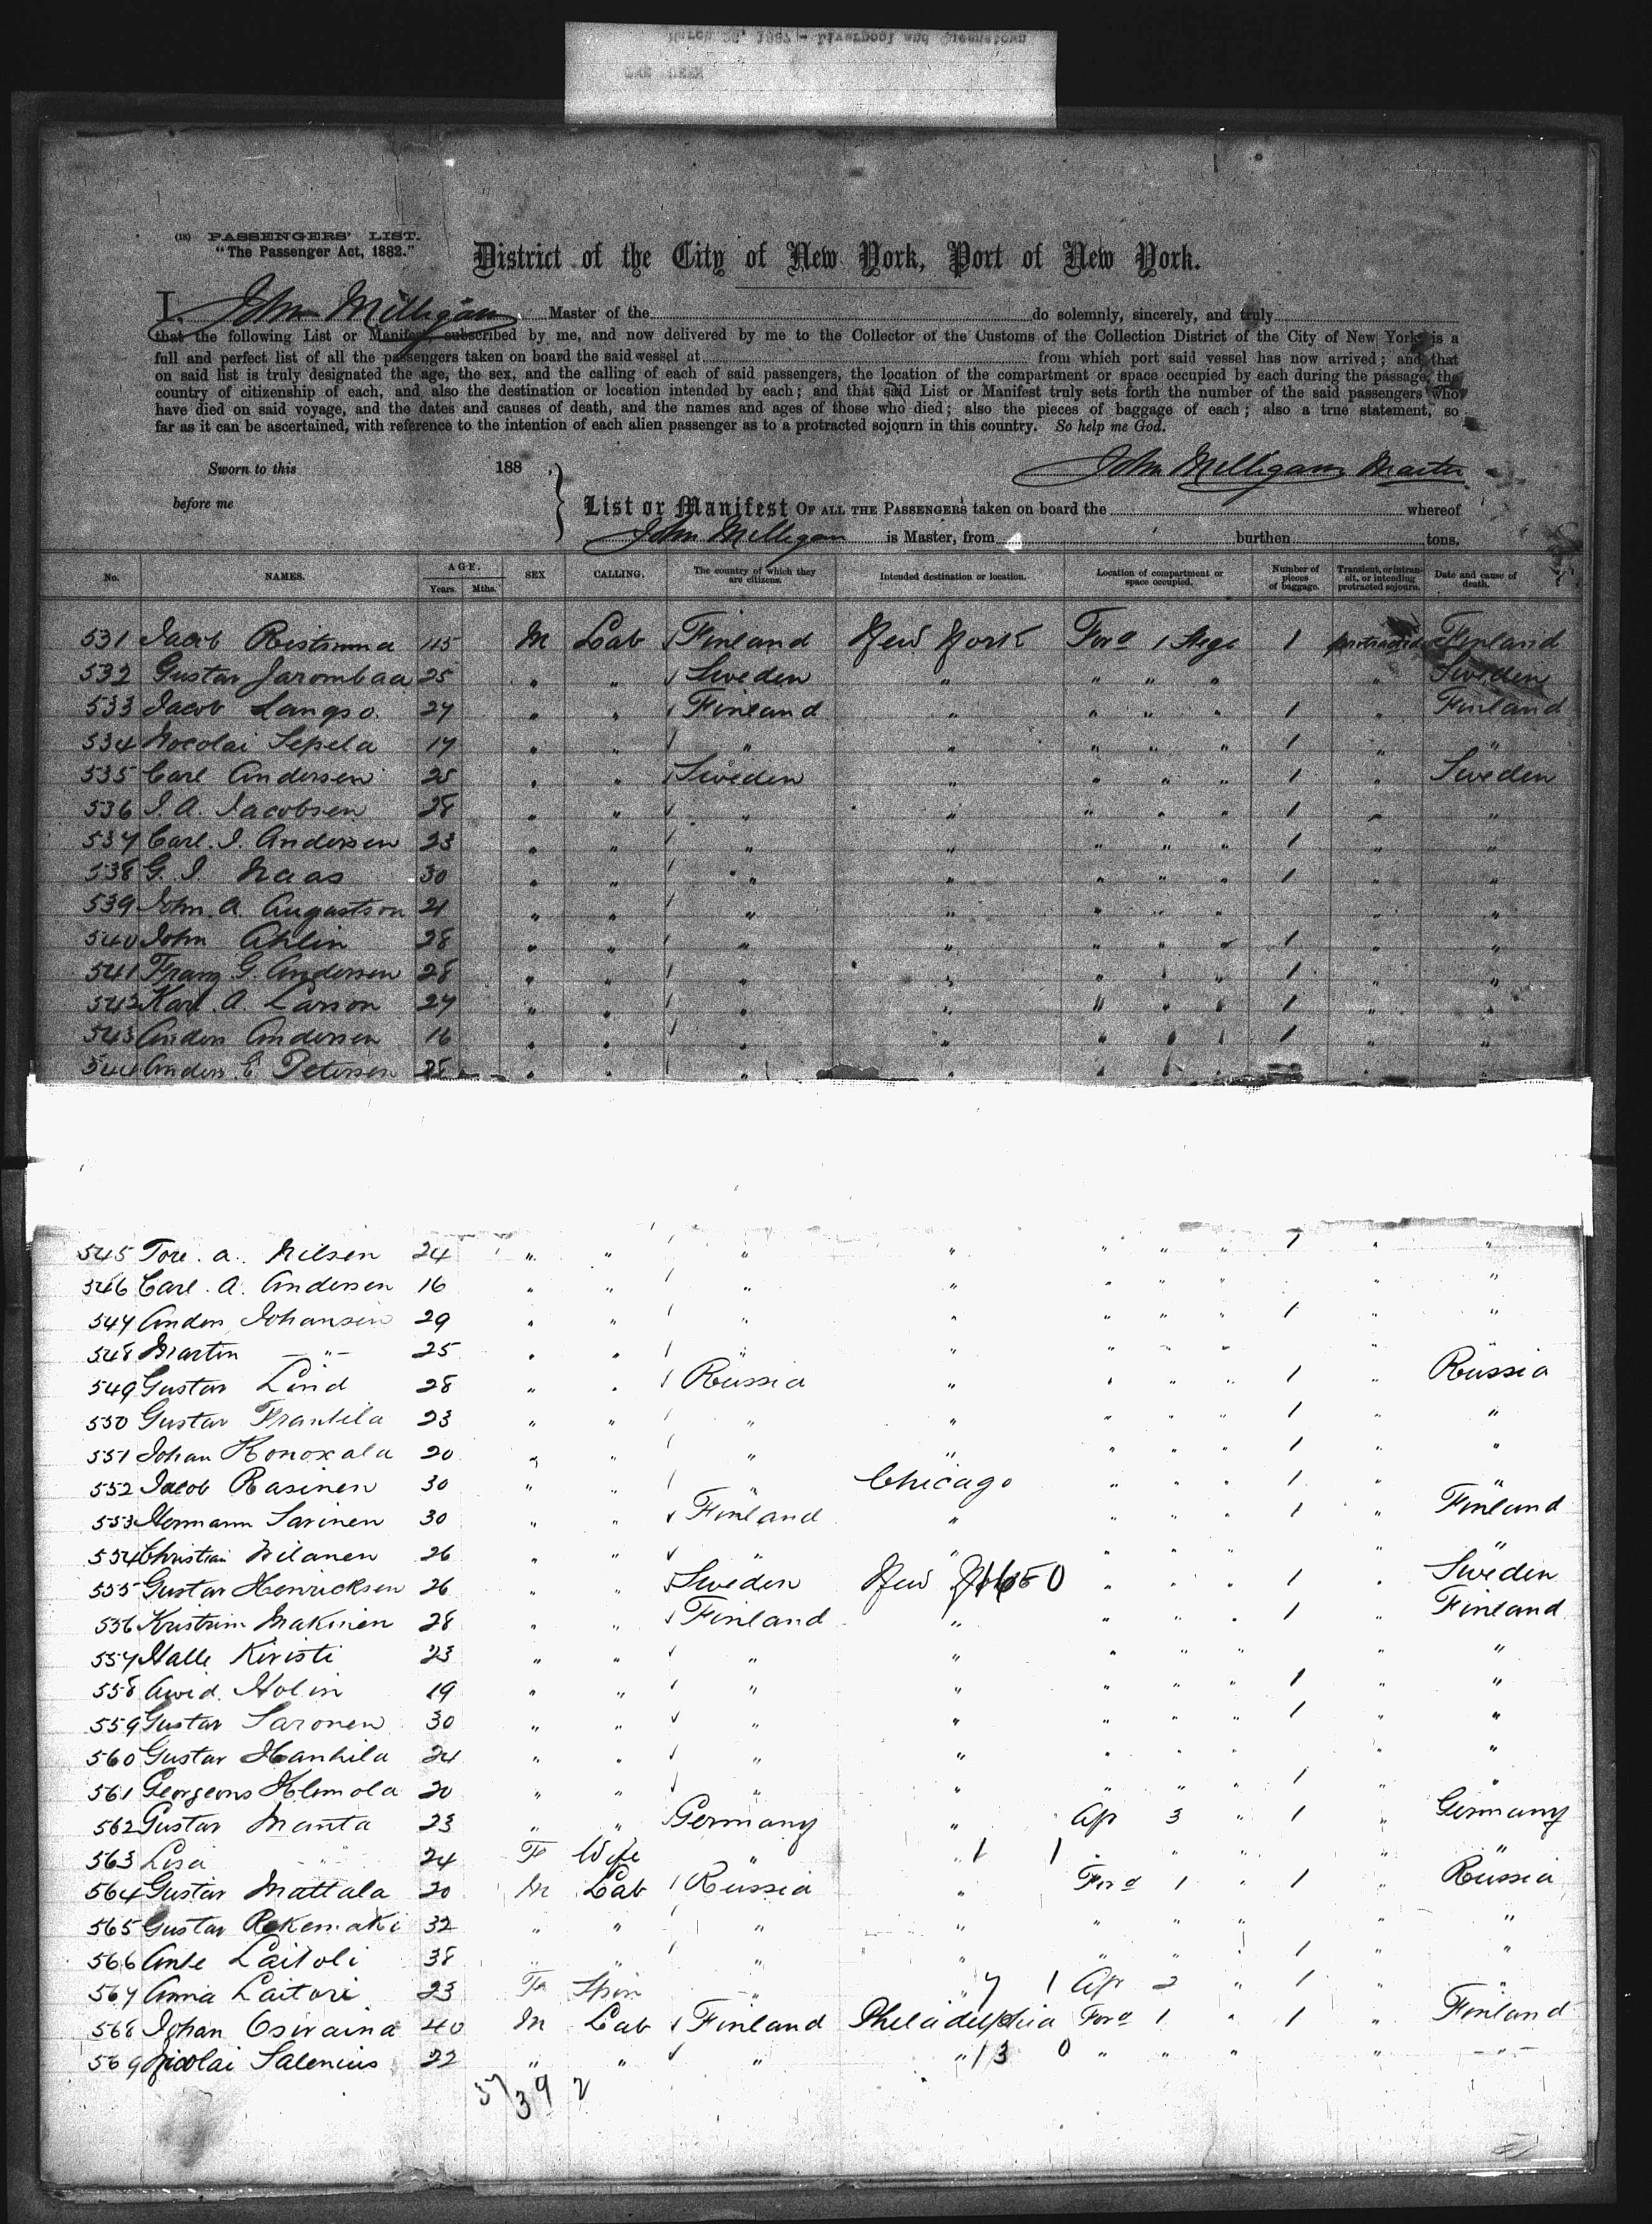 March 26, 1887 - Liverpool and Queenstown
(18) PASSENGERS' LIST.
"The Passenger Act, 1882."
District of the City of New York, Port of New York.
I, John Milligan Master of the do solemnly, sincerely, and truly
that the following List or Manifest, subscribed by me, and now delivered by me to the Collector of the Customs of the Collection District of the City of New York, is a
full and perfect list of all the passengers taken on board the said vessel at from which port said vessel has now arrived; and that
on said list is truly designated the age, the sex, and the calling of each of said passengers, the location of the compartment or space occupied by each during the passage, the
country of citizenship of each, and also the destination or location intended by each; and that said List or Manifest truly sets forth the number of the said passengers who
have died on said voyage, and the dates and causes of death, and the names and ages of those who died; also the pieces of baggage of each; also a true statement, so
far as it can be ascertained, with reference to the intention of each alien passenger as to a protracted sojourn in this country. So help me God.
Sworn to this 188
John Milligan Master
before me
List or Manifest OF ALL THE PASSENGERS taken on board the whereof
John Milligan is Master, from burthen tons.
No. NAMES. AGE. Years. Mths. SEX CALLING. The country of which they are citizens. Intended destination or location. Location of compartment or space occupied. Number of pieces of baggage. Transient, or in transit, or intending protracted sojourn. Date and cause of death.
531 Jacob Ristimma 45 M Lab Finland New York Ford 1 Stege 1 protracted Finland
532 Gustav Jarombaa 25 " " Sweden " " " " " Sweden
533 Jacob Langso 27 " " Finland " " " " 1 " Finland
534 Nocolai Sepela 17 " " " " " " " 1 " "
535 Carl Andersen 25 " " Sweden " " " " 1 " Sweden
536 J. A. Jacobsen 28 " " " " " " " 1 " "
537 Carl. J. Andersen 23 " " " " " " " 1 " "
538 G. J. Naas 30 " " " " " " " 1 " "
539 John. A. Augustson 21 " " " " " " " " "
540 John Ahlin 28 " " " " " " " 1 " "
541 Franz G. Andersen 28 " " " " " " " 1 " "
542 Karl. A. Larson 27 " " " " " " " 1 " "
543 Anders Andersen 16 " " " " " " " 1 " "
544 Anders. E. Petersen 25 " " " " " " "
545 Tore. A. Nilsen 24 " " " " " " " 1 " "
546 Carl. A. Andersen 16 " " " " " " " " "
547 Anders Johansen 29 " " " " " " " 1 " "
548 Martin " 25 " " " " " " " " "
549 Gustav Lind 28 " " Russia " " " " 1 " Russia
550 Gustav Frantila 23 " " " " " " " 1 " "
551 Johan Konoxala 20 " " " " " " " 1 " "
552 Jacob Rasinen 30 " " " Chicago " " " 1 " "
553 Hermann Sarinen 30 " " Finland " " " " 1 " Finland
554 Christian Nilanen 26 " " " " " " " " "
555 Gustav Henricksen 26 " " Sweden New " " " 1 " Sweden
556 Makinen 28 " " Finland " " " " 1 " Finland
557 Halle Kiristi 23 " " " " " " " " "
558 Awid. Holin 19 " " " " " " " 1 " "
559 Gustav Saronen 30 " " " " " " " 1 " "
560 Gustav Hanhila 24 " " " " " " " "
561 Georgeons Klemola 20 " " " " " " " 1 " "
562 Gustav Manta 23 " " Germany " Ap 3 " 1 " Germany
563 Lisa " 24 F Wife " " 1 1 " " " "
564 Gustav Mattala 20 M Lab Russia " Ford 1 " 1 " Russia
565 Gustav Rekemaki 32 " " " " " " " " "
566 Ante Laitoli 38 " " " " " " 1 " "
567 Anna Laitori 23 F Spin " " 7 1 Ap 2 " 1 " "
568 Johan Osiraina 40 M Lab Finland Philadelphia Ford 1 " 1 " Finland
569 Nicolai Salenius 22 " " " " 13 0 " " " " "
37/39 2